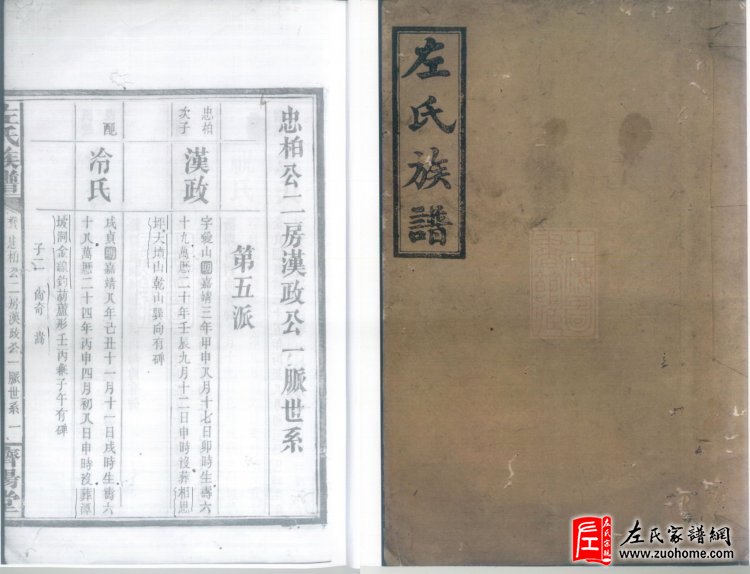 左氏族譜
忠柏公二房漢政公一脈世系
第五派
忠柏
次子
漢政
字愛山明嘉靖三年甲申又月十七日卯時生壽六
十九萬曆二十年壬辰九月十二日申時沒葬相思
坪大塆山乾山巽向有碑
配
冷氏
戌貞明嘉靖八年己丑十一月十一日戌時生壽六
十八萬曆二十四年丙申四月初八日申時沒葬潭
坡洞金線釣葫蘆形壬丙兼子午有碑
子二 尙奇 嵩
左氏族譜
忠柏公二房漢政公一脈世系 一
濟陽堂
左氏家譜網
www.zuohome.com